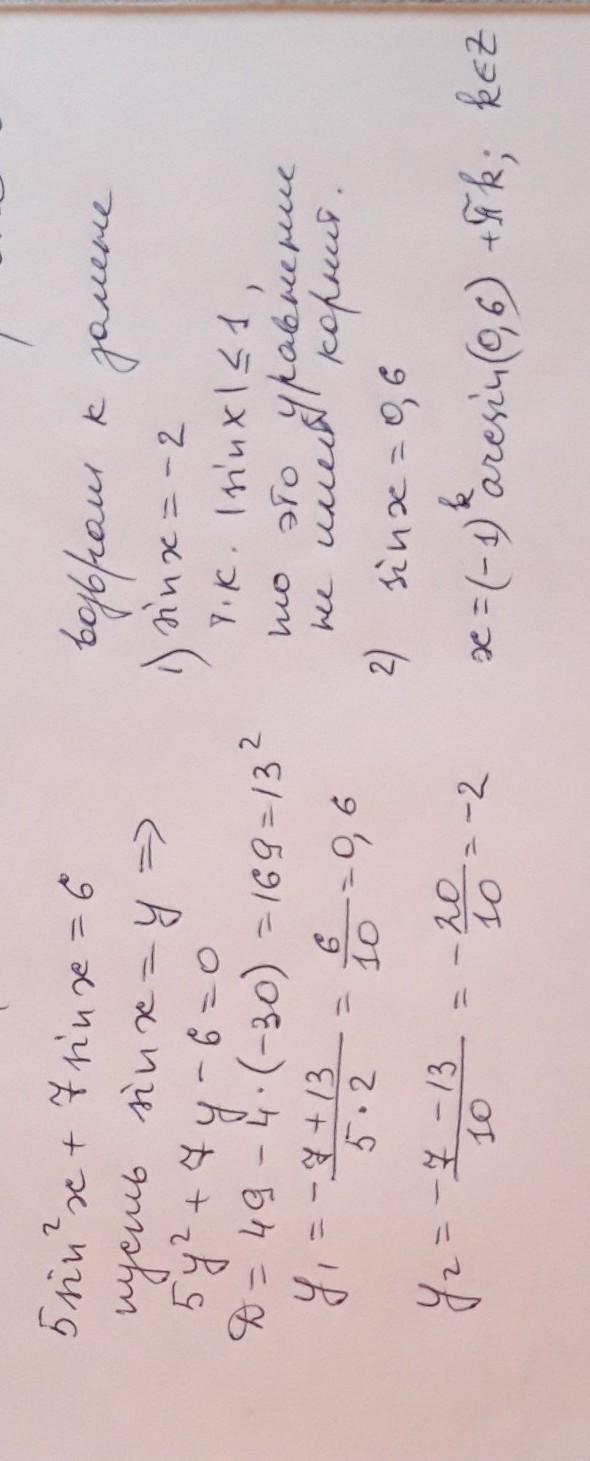 5sin²x + 7sinx = 6
пусть sinx = y ⇒
5y² + 7y - 6 = 0
D = 49 - 4·(-30) = 169 = 13²
y₁ = -7 + 13 / 5·2 = 6/10 = 0,6
y₂ = -7 - 13 / 10 = -20/10 = -2
возврат к замене
1) sinx = -2
т.к. |sinx| ≤ 1,
то это уравнение
не имеет корния.
2) sinx = 0,6
x = (-1)ᵏ arcsin(0,6) + πk; k∈Z